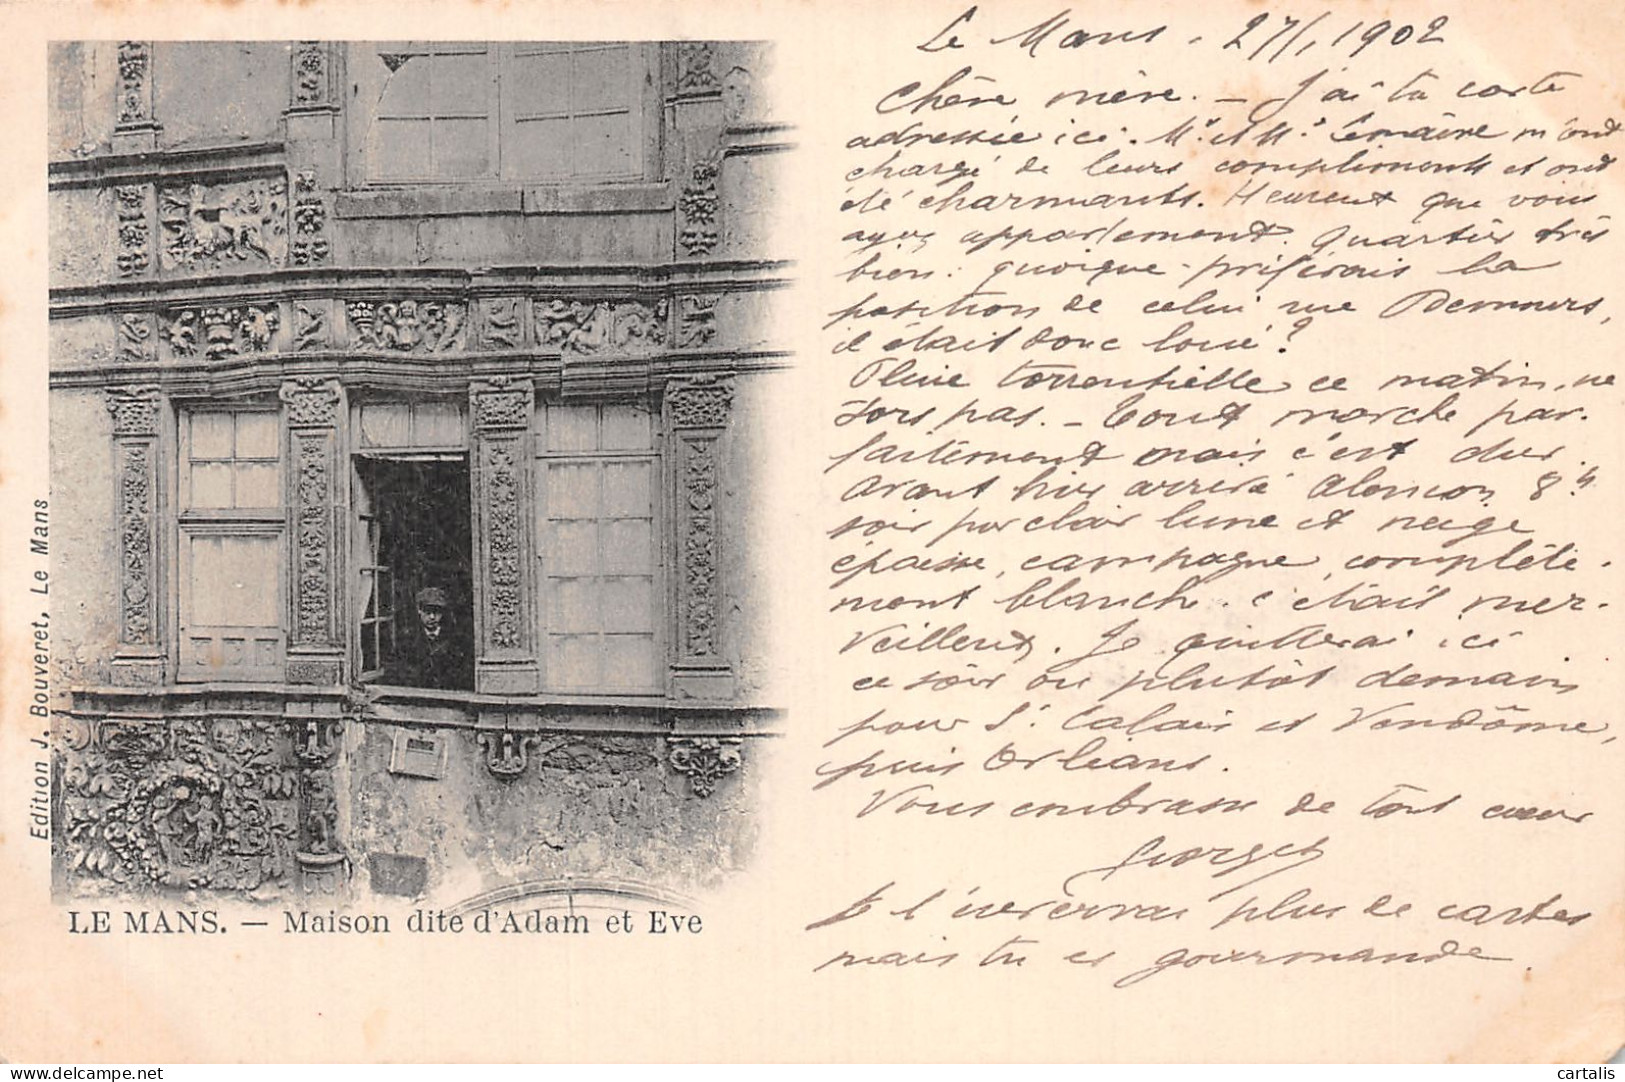 Le Mans, 27/1, 1902
Chère mère. — J'ai ta carte
adressée ici. Mr et Me Lemaire m'ont
chargé de leurs compliments et ont
été charmants. Heureux que vous
ayez appartement. Quartier très
bien : quoique préférais la
position de celui rue Demours,
il était donc loué ?
Pluie torrentielle ce matin, ne
sors pas. — Tout marche par-
faitement mais c'est dur.
Avant hier arrivé Alençon 8h
soir par clair lune et neige
épaisse, campagne complète-
ment blanche. C'était mer-
veilleux. Je quitterai ici
ce soir ou plutôt demain
pour St Calais et Vendôme,
puis Orléans.
Vous embrasse de tout cœur
Georges
Je t'enverrai plus de cartes
mais tu es gourmande.
Edition J. Bouveret, Le Mans
LE MANS. — Maison dite d'Adam et Eve
cartalis
delcampe.net